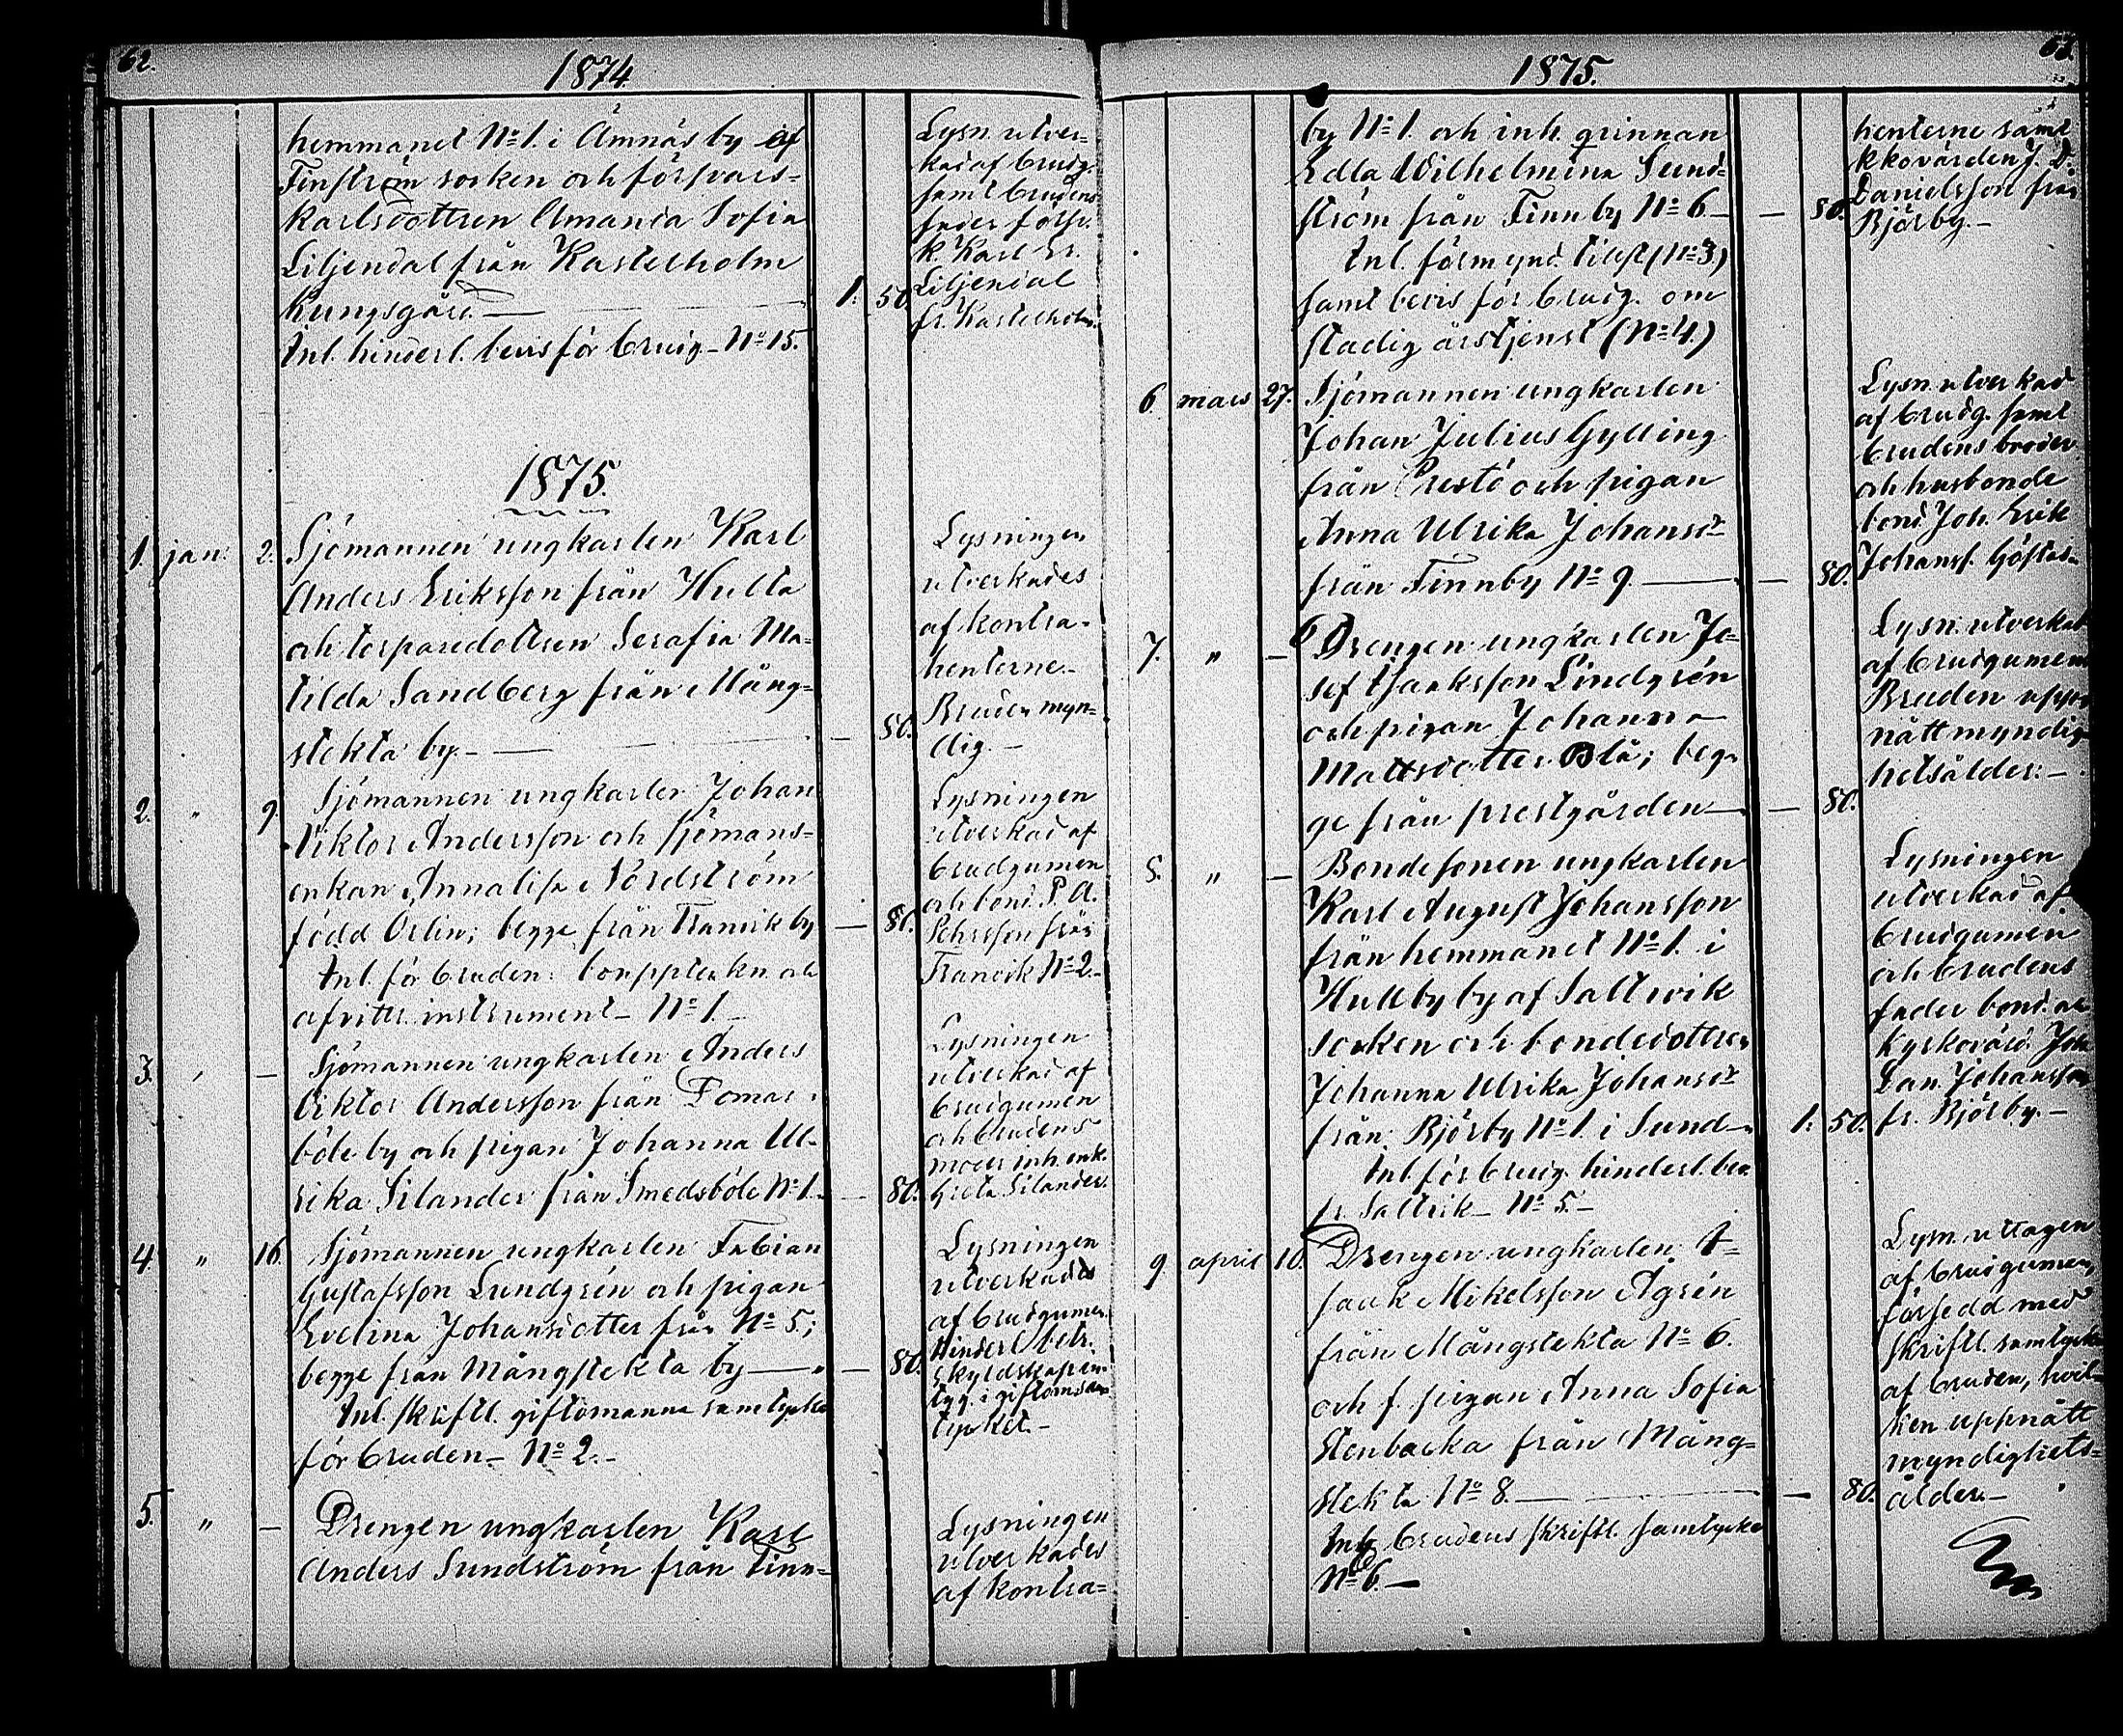 62.
1874.
hemmanet No 1. i Ämnäs by af
Finström socken och försvars-
karlsdottren Amanda Sofia
Liljendal från Kastelholm
Kungsgård.— 1. 50.
Inl. hinderl. bevis för brudg. No 15.
Lysn. utver-
kad af brudg.
samt brudens
fader försv.
k. Karl Er.
Liljendal
fr. Kastelholm.
1875.
1. jan. 2. Sjömannen ungkarlen Karl
Anders Eriksson från Hulta
och torparedottren Serafia Ma-
tilda Sandberg från Mång-
stekta by.— — 80.
Lysningen
utverkades
af kontra-
henterne.
Bruden myn-
dig.—
2. " 9. Sjömannen ungkarlen Johan
Viktor Andersson och sjömans-
enkan Annalisa Nordström
född Orlin; begge från Tranvik by — 80.
Inl. för bruden: bouppteckn. och
afvittr. instrument— No 1.—
Lysningen
utverkad af
brudgumen
och bond. P. A.
Pehrsson från
Tranvik No 2.—
3. " — Sjömannen ungkarlen Anders
Viktor Andersson från Tomas-
böle by och pigan Johanna Ul-
rika Silander från Smedsböle No 1. — 80.
Lysningen
utverkad af
brudgumen
och brudens
moder inh. enk.
Greta Silander.
4. " 16. Sjömannen ungkarlen Fabian
Gustafsson Lundgrén och pigan
Evelina Johansdotter från No 5;
begge från Mångstekta by— — 80.
Inl. skriftl. giftomanna samtycke
för bruden— No 2.—
Lysningen
utverkades
af brudgumen.
Hinderl. betr.
skyldskap in-
tyg. i giftom. sam-
tycket.—
5. " — Drengen ungkarlen Karl
Anders Sundström från Finn-
Lysningen
utverkades
af kontra-
63.
1875.
by No 1. och inh. qvinnan
Edla Wilhelmina Sund-
ström från Finnby No 6— — 80.
Inl. förmynd. tillst. (No 3)
samt bevis för brudg. om
stadig årstjenst (No 4.)
henterne samt
kkovärden J. D.
Danielsson från
Björby.—
6. mars 27. Sjömannen ungkarlen
Johan Julius Gylling
från Prestö och pigan
Anna Ulrika Johansdr
från Finnby No 9.— — 80.
Lysn. utverkad
af brudg. samt
brudens broder
och husbonde
bond. Joh. Erik
Johanss. Göstas-
7. " — Drengen ungkarlen Jo-
sef Isaksson Lindgrén
och pigan Johanna
Mattsdotter Blå; beg-
ge från prestgården— — 80.
Lysn. utverkad
af brudgumen
Bruden upp-
nått myndig-
hetsålder.—
8. " — Bondesonen ungkarlen
Karl August Johansson
från hemmanet No 1. i
Hullby by af Saltvik
socken och bondedottren
Johanna Ulrika Johansdr
från Björby No 1. i Sund— 1. 50.
Inl. för brudg. hinderl. bev.
fr. Saltvik— No 5.—
Lysningen
utverkad af
brudgumen
och brudens
fader bond. och
kyrkovärd. Joh.
Dan. Johansson
fr. Björby.—
9. april 10. Drengen ungkarlen I-
saak Mikelsson Ågrén
från Mångstekta No 6.
och f. pigan Anna Sofia
Stenbacka från Mång-
stekta No 8.— — 80.
Inl. brudens skriftl. samtycke
No 6.—
Lysn. uttagen
af brudgumen,
försedd med
skriftl. samtycke
af bruden, hvil-
ken uppnått
myndighets-
ålder.—